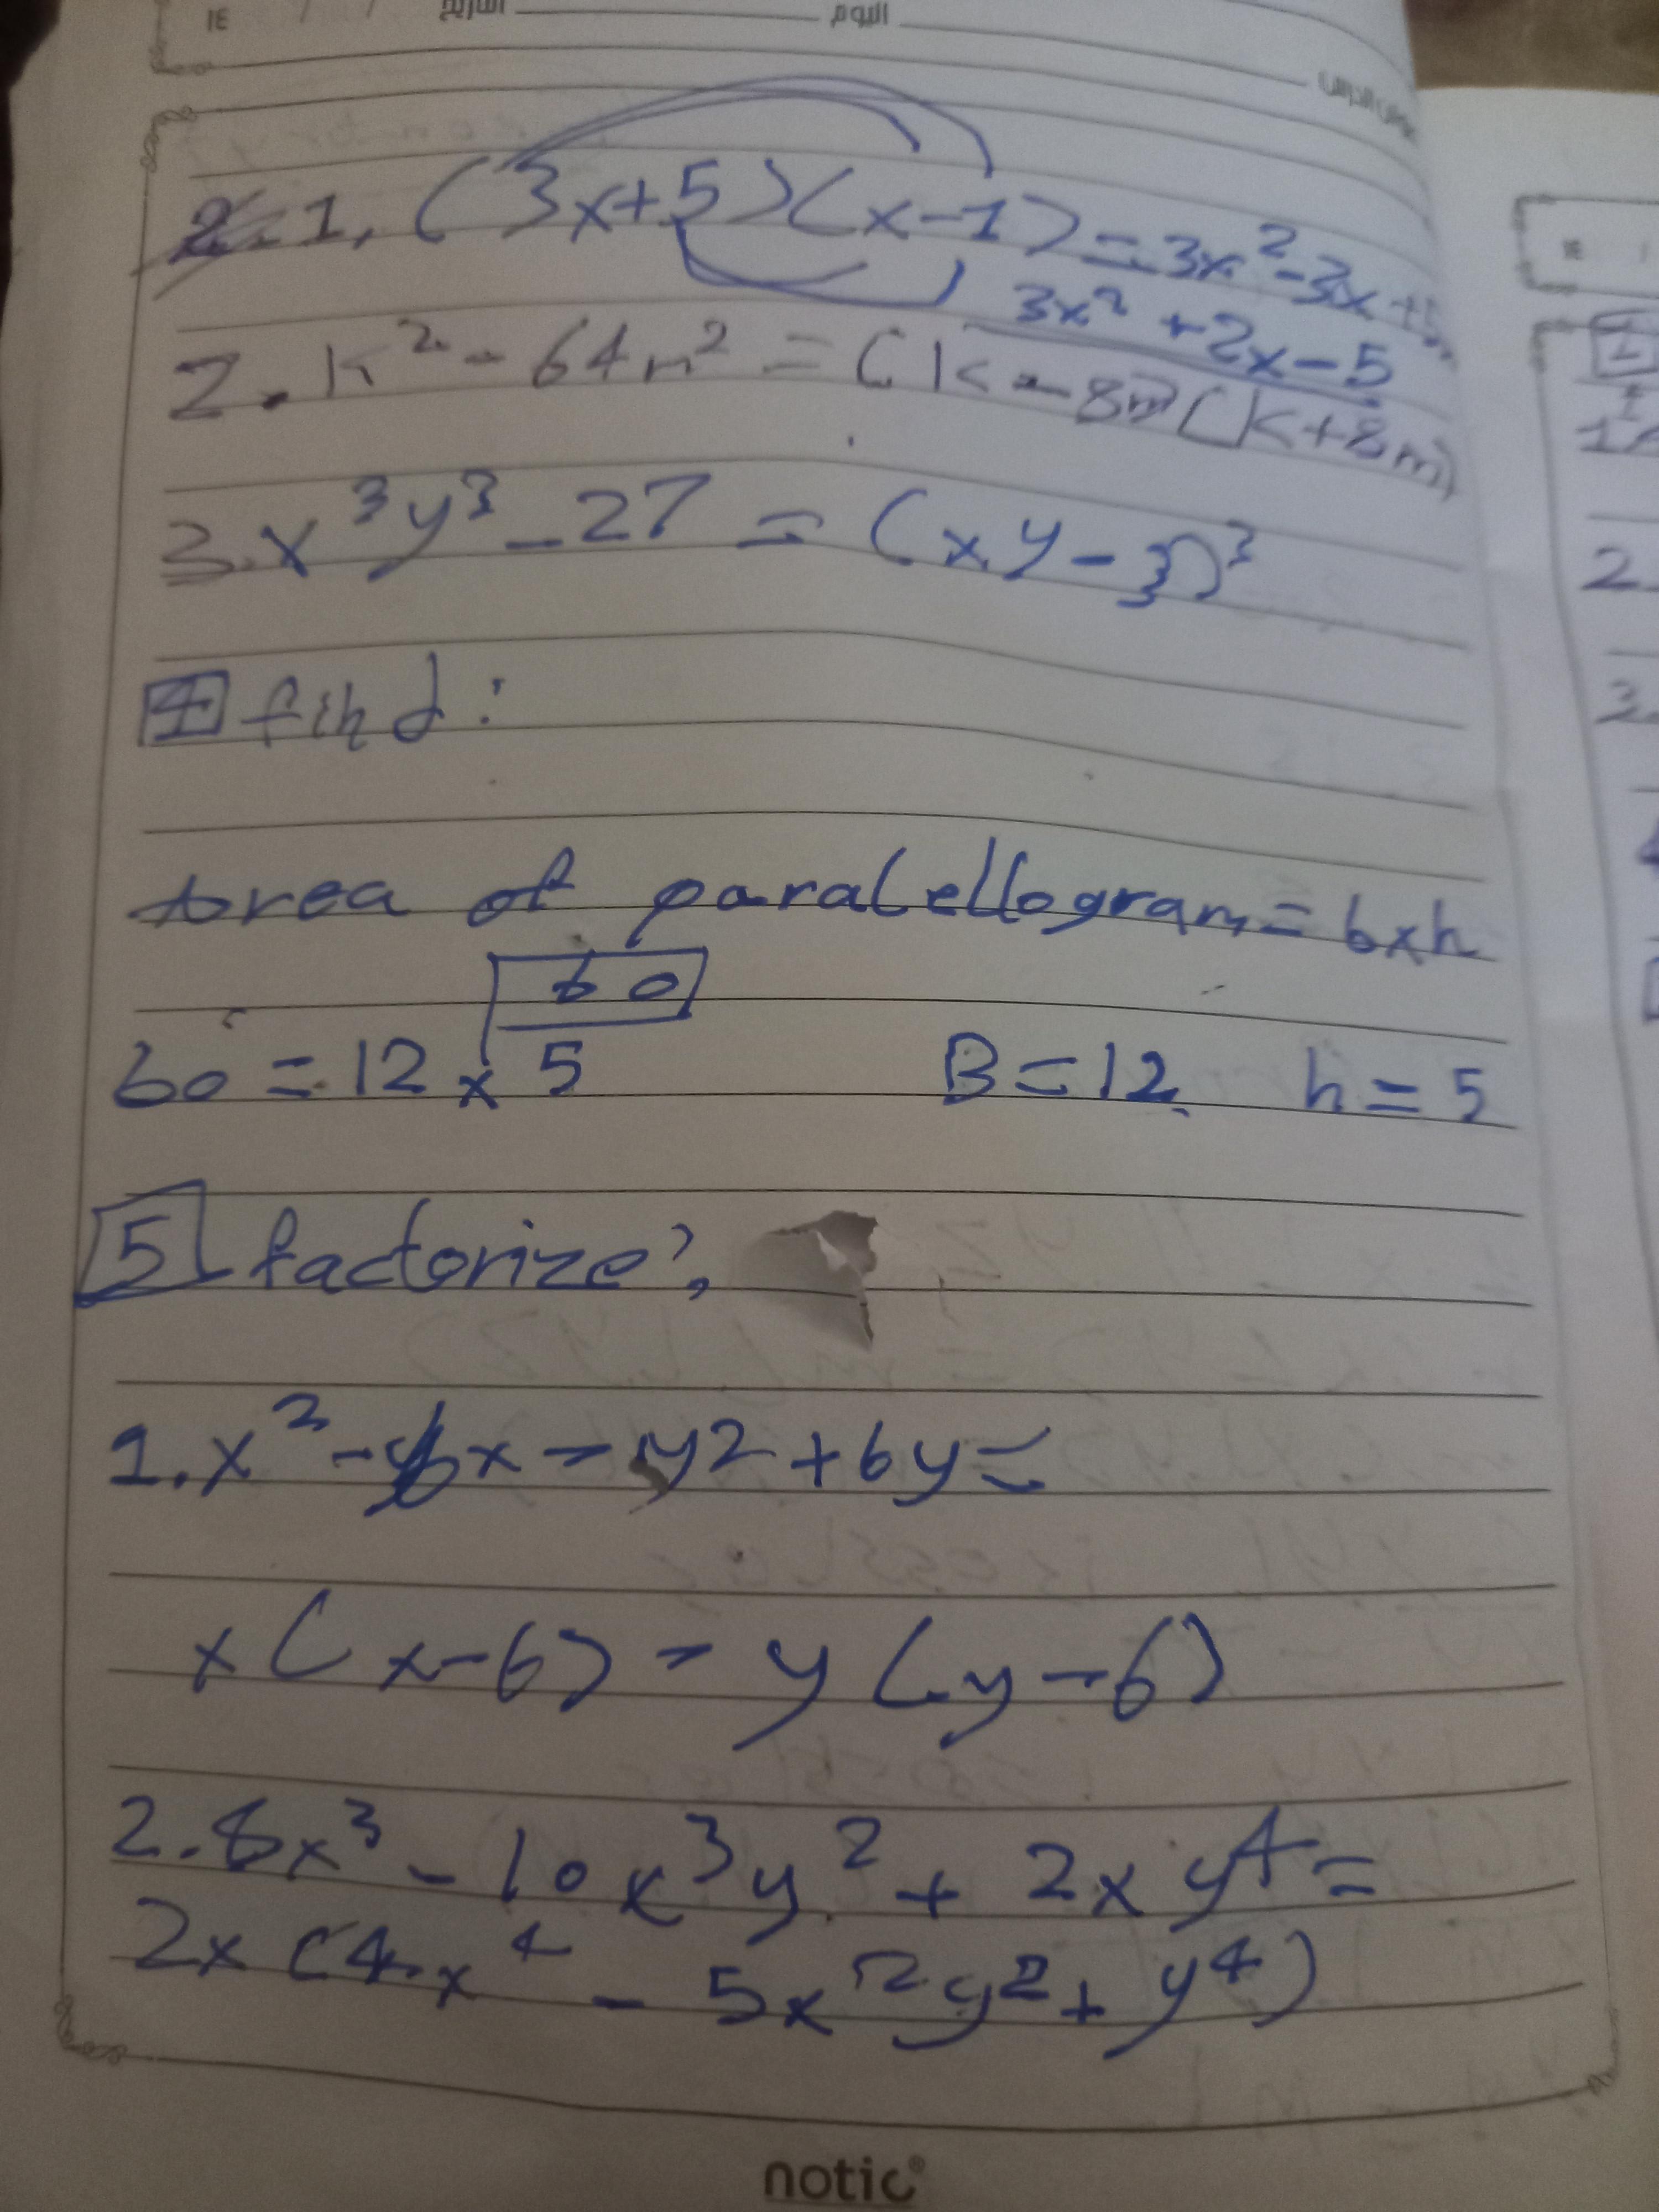 ١٤ / / التاريخ اليوم
1. (3x+5)(x-1)=3x²-3x+5
3x² +2x-5
2. k² - 64m² = (k-8m)(k+8m)
3. x³y³ - 27 = (xy-3)³
4 find:
area of paralellogram = b×h
60
60 = 12 × 5 B=12 h=5
5 factorize:
1. x² - 6x - y2 + 6y =
x(x-6) - y(y-6)
2. 8x³ - 10x³y² + 2xy4 =
2x(4x⁴ - 5x²y² + y⁴)
1
2.
3.
notic®